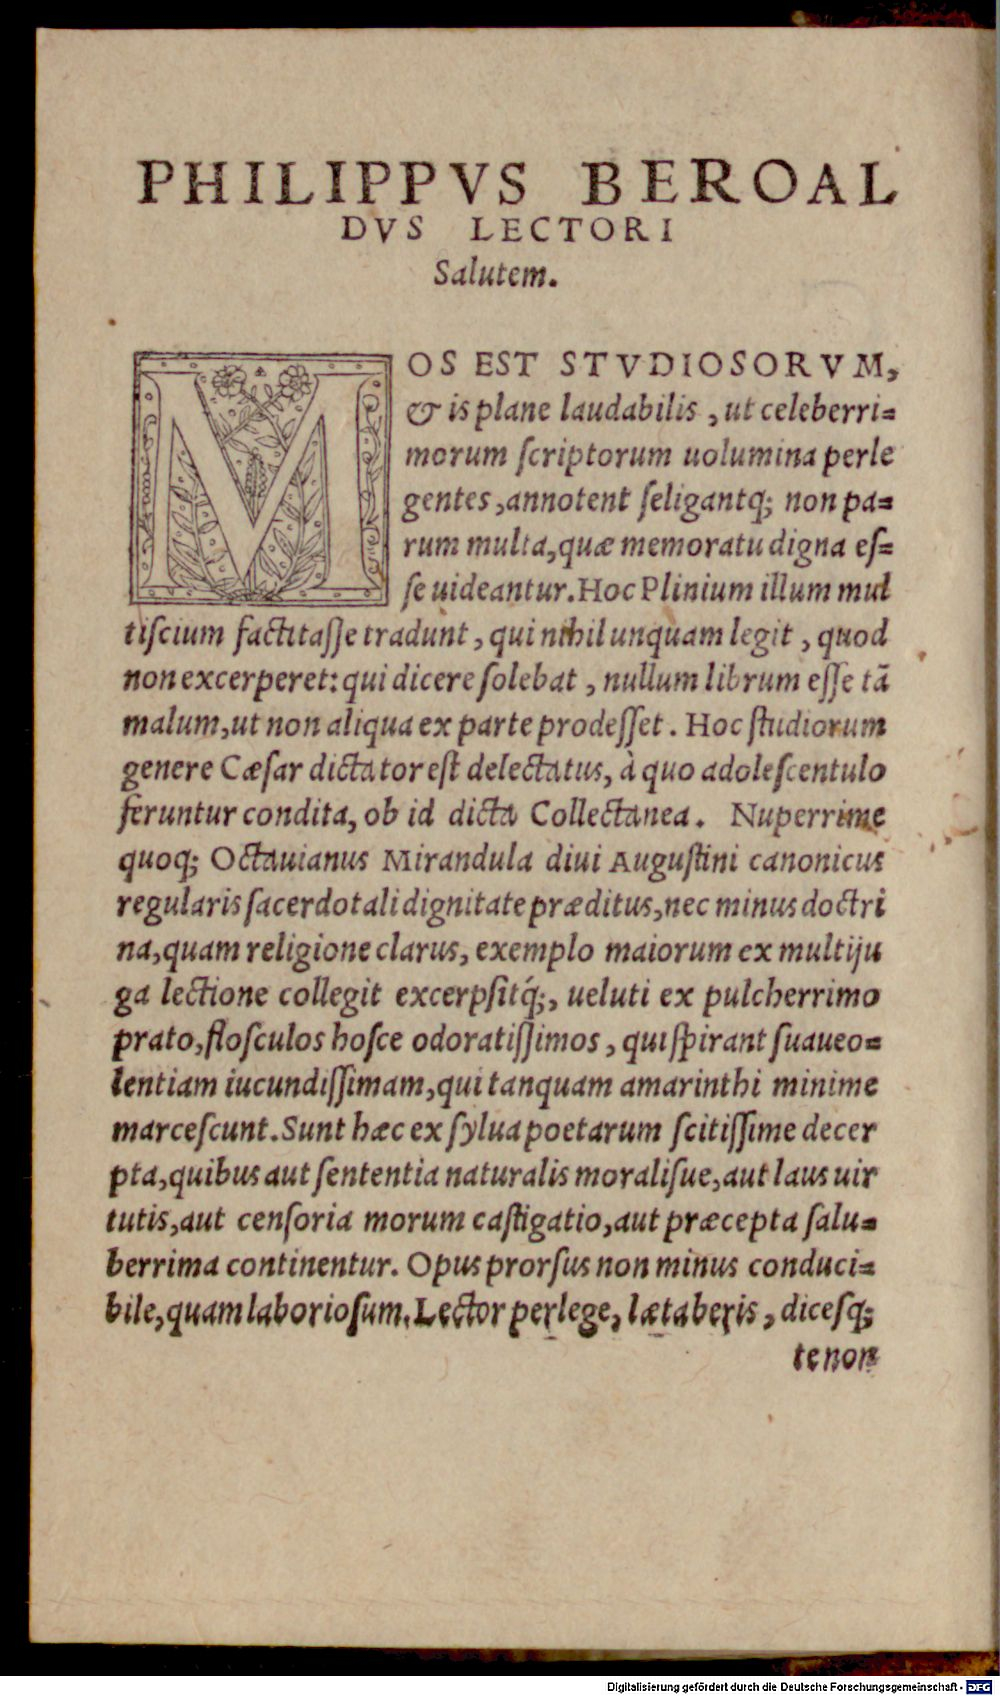 PHILIPPVS BEROAL
DVS LECTORI
Salutem.
MOS EST STVDIOSORVM,
& is plane laudabilis, ut celeberri=
morum ſcriptorum uolumina perle
gentes, annotent ſeligantq; non pa=
rum multa, quæ memoratu digna eſ=
ſe uideantur. Hoc Plinium illum mul
tiſcium factitaſſe tradunt, qui nihil unquam legit, quod
non excerperet: qui dicere ſolebat, nullum librum eſſe tā
malum, ut non aliqua ex parte prodeſſet. Hoc ſtudiorum
genere Cæſar dictator eſt delectatus, à quo adoleſcentulo
feruntur condita, ob id dicta Collectanea. Nuperrime
quoq; Octauianus Mirandula diui Auguſtini canonicus
regularis ſacerdotali dignitate præditus, nec minus doctri
na, quam religione clarus, exemplo maiorum ex multiju
ga lectione collegit excerpſitq́;, ueluti ex pulcherrimo
prato, floſculos hoſce odoratiſſimos, qui ſpirant ſuaueo=
lentiam iucundiſſimam, qui tanquam amarinthi minime
marceſcunt. Sunt hæc ex ſylua poetarum ſcitiſſime decer
pta, quibus aut ſententia naturalis moraliſue, aut laus uir
tutis, aut cenſoria morum caſtigatio, aut præcepta ſalu=
berrima continentur. Opus prorſus non minus conduci=
bile, quam laborioſum. Lector perlege, lætaberis, diceſq;
te non
Digitalisierung gefördert durch die Deutsche Forschungsgemeinschaft - DFG